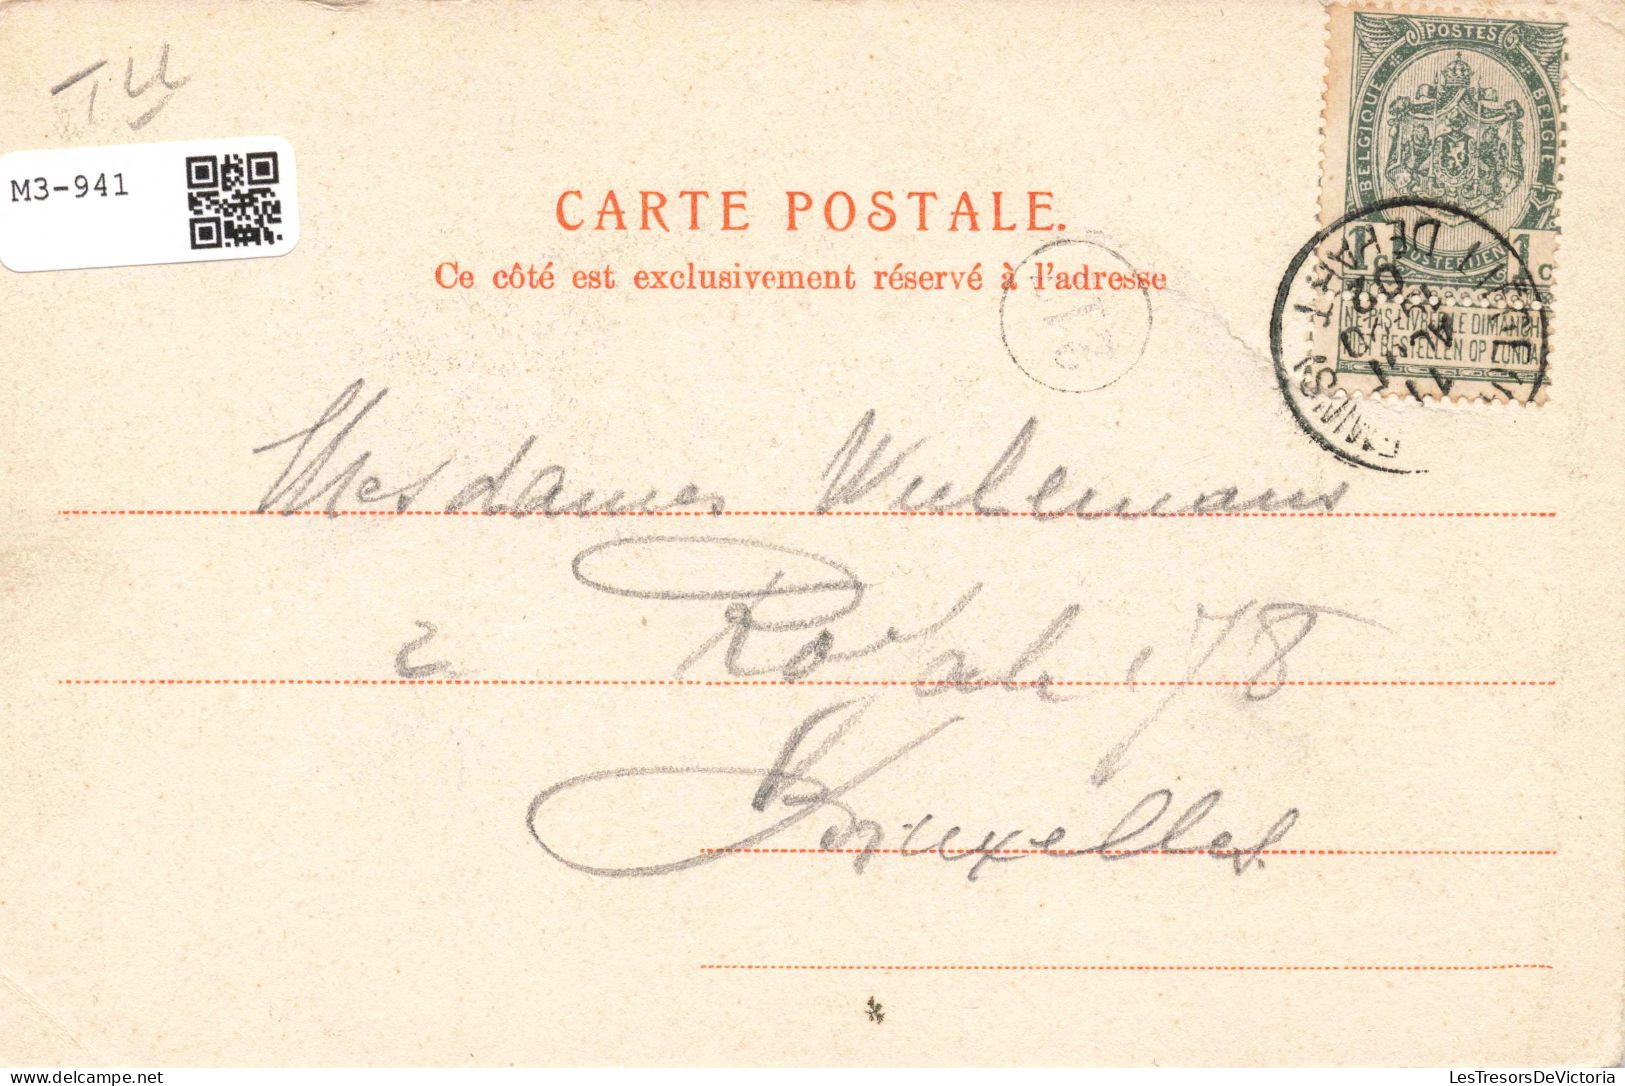 M3-941
CARTE POSTALE.
Ce côté est exclusivement réservé à l'adresse
POSTES
BELGIQUE
BELGIE
NE PAS LIVRER LE DIMANCHE
NIET BESTELLEN OP ZONDAG
DEPART
Mesdames Wielemans
r. Royale 178
Bruxelles
LesTresorsDeVictoria